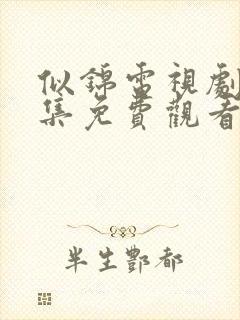 似錦雷視劇
集免費觀看
半生酆都